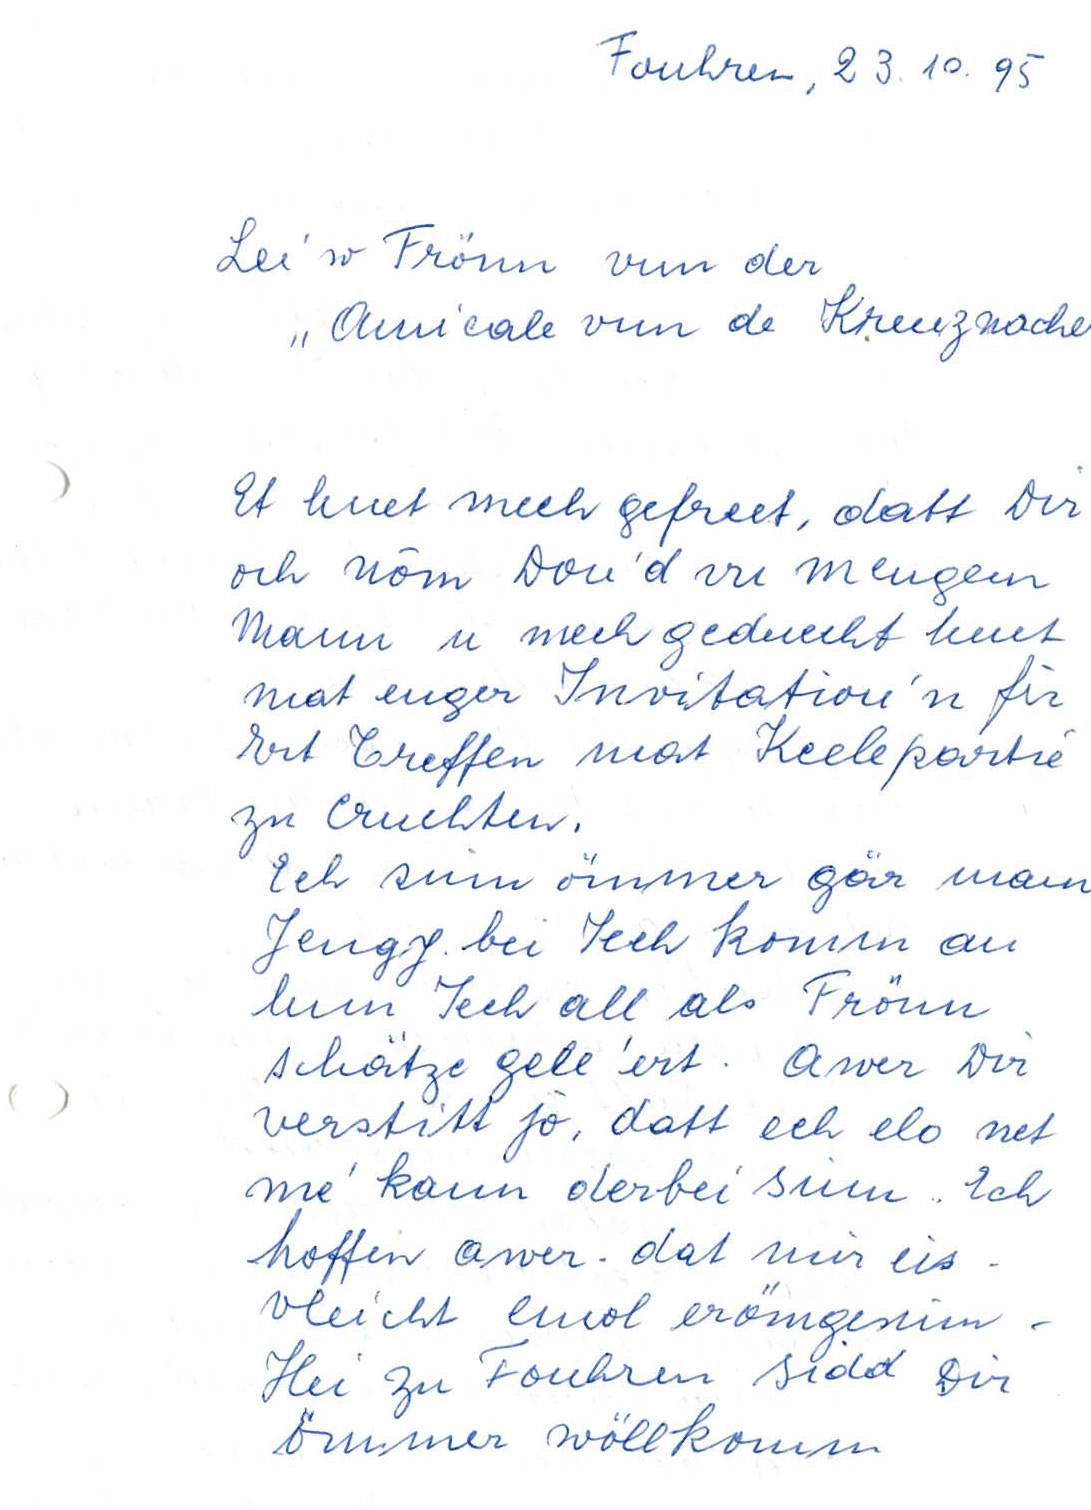 Fouhren, 23.10.95
Lei'w Frönn vun der
„Amicale vun de Kreuznacher
Et huet mech gefreet, datt Dir
och nom Dou'd vu mengem
Mann u mech geduecht huet
mat enger Invitatiou'n fir
Ert Treffen mat Keelepartie
zu Cruchten.
Ech sinn ömmer gär mam
Jengy. bei Iech komm an
hun Iech all als Frönn
schätze gele'ert. Awer Dir
verstitt jo, datt ech elo net
me' kann derbei sinn. Ech
hoffen awer. dat mir eis -
vleicht emol erömgesinn -
Hei zu Fouhren sidd Dir
ömmer wöllkomm